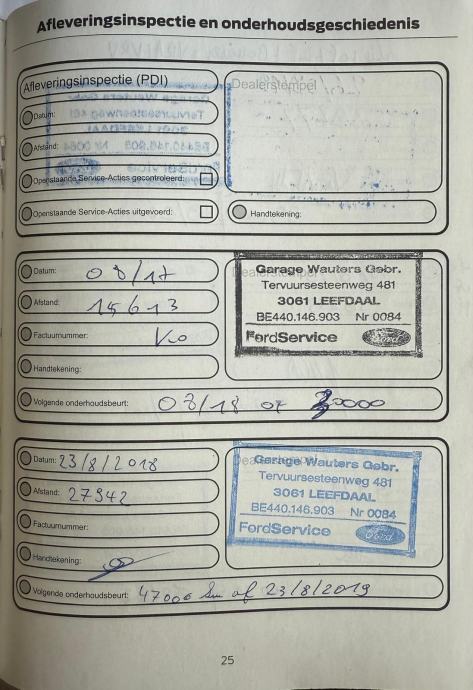 Afleveringsinspectie en onderhoudsgeschiedenis
Afleveringsinspectie (PDI)
Dealerstempel
Datum:
Afstand:
Openstaande Service-Acties gecontroleerd:
Openstaande Service-Acties uitgevoerd:
Handtekening:
Datum: 08/17
Afstand: 15613
Factuurnummer:
Handtekening:
Garage Wauters Gebr.
Tervuursesteenweg 481
3061 LEEFDAAL
BE440.146.903 Nr 0084
FordService Ford
Volgende onderhoudsbeurt: 08/18 of 30000
Datum: 23/8/2018
Afstand: 27942
Factuurnummer:
Handtekening:
Garage Wauters Gebr.
Tervuursesteenweg 481
3061 LEEFDAAL
BE440.146.903 Nr 0084
FordService Ford
Volgende onderhoudsbeurt: 47000 km of 23/8/2019
25